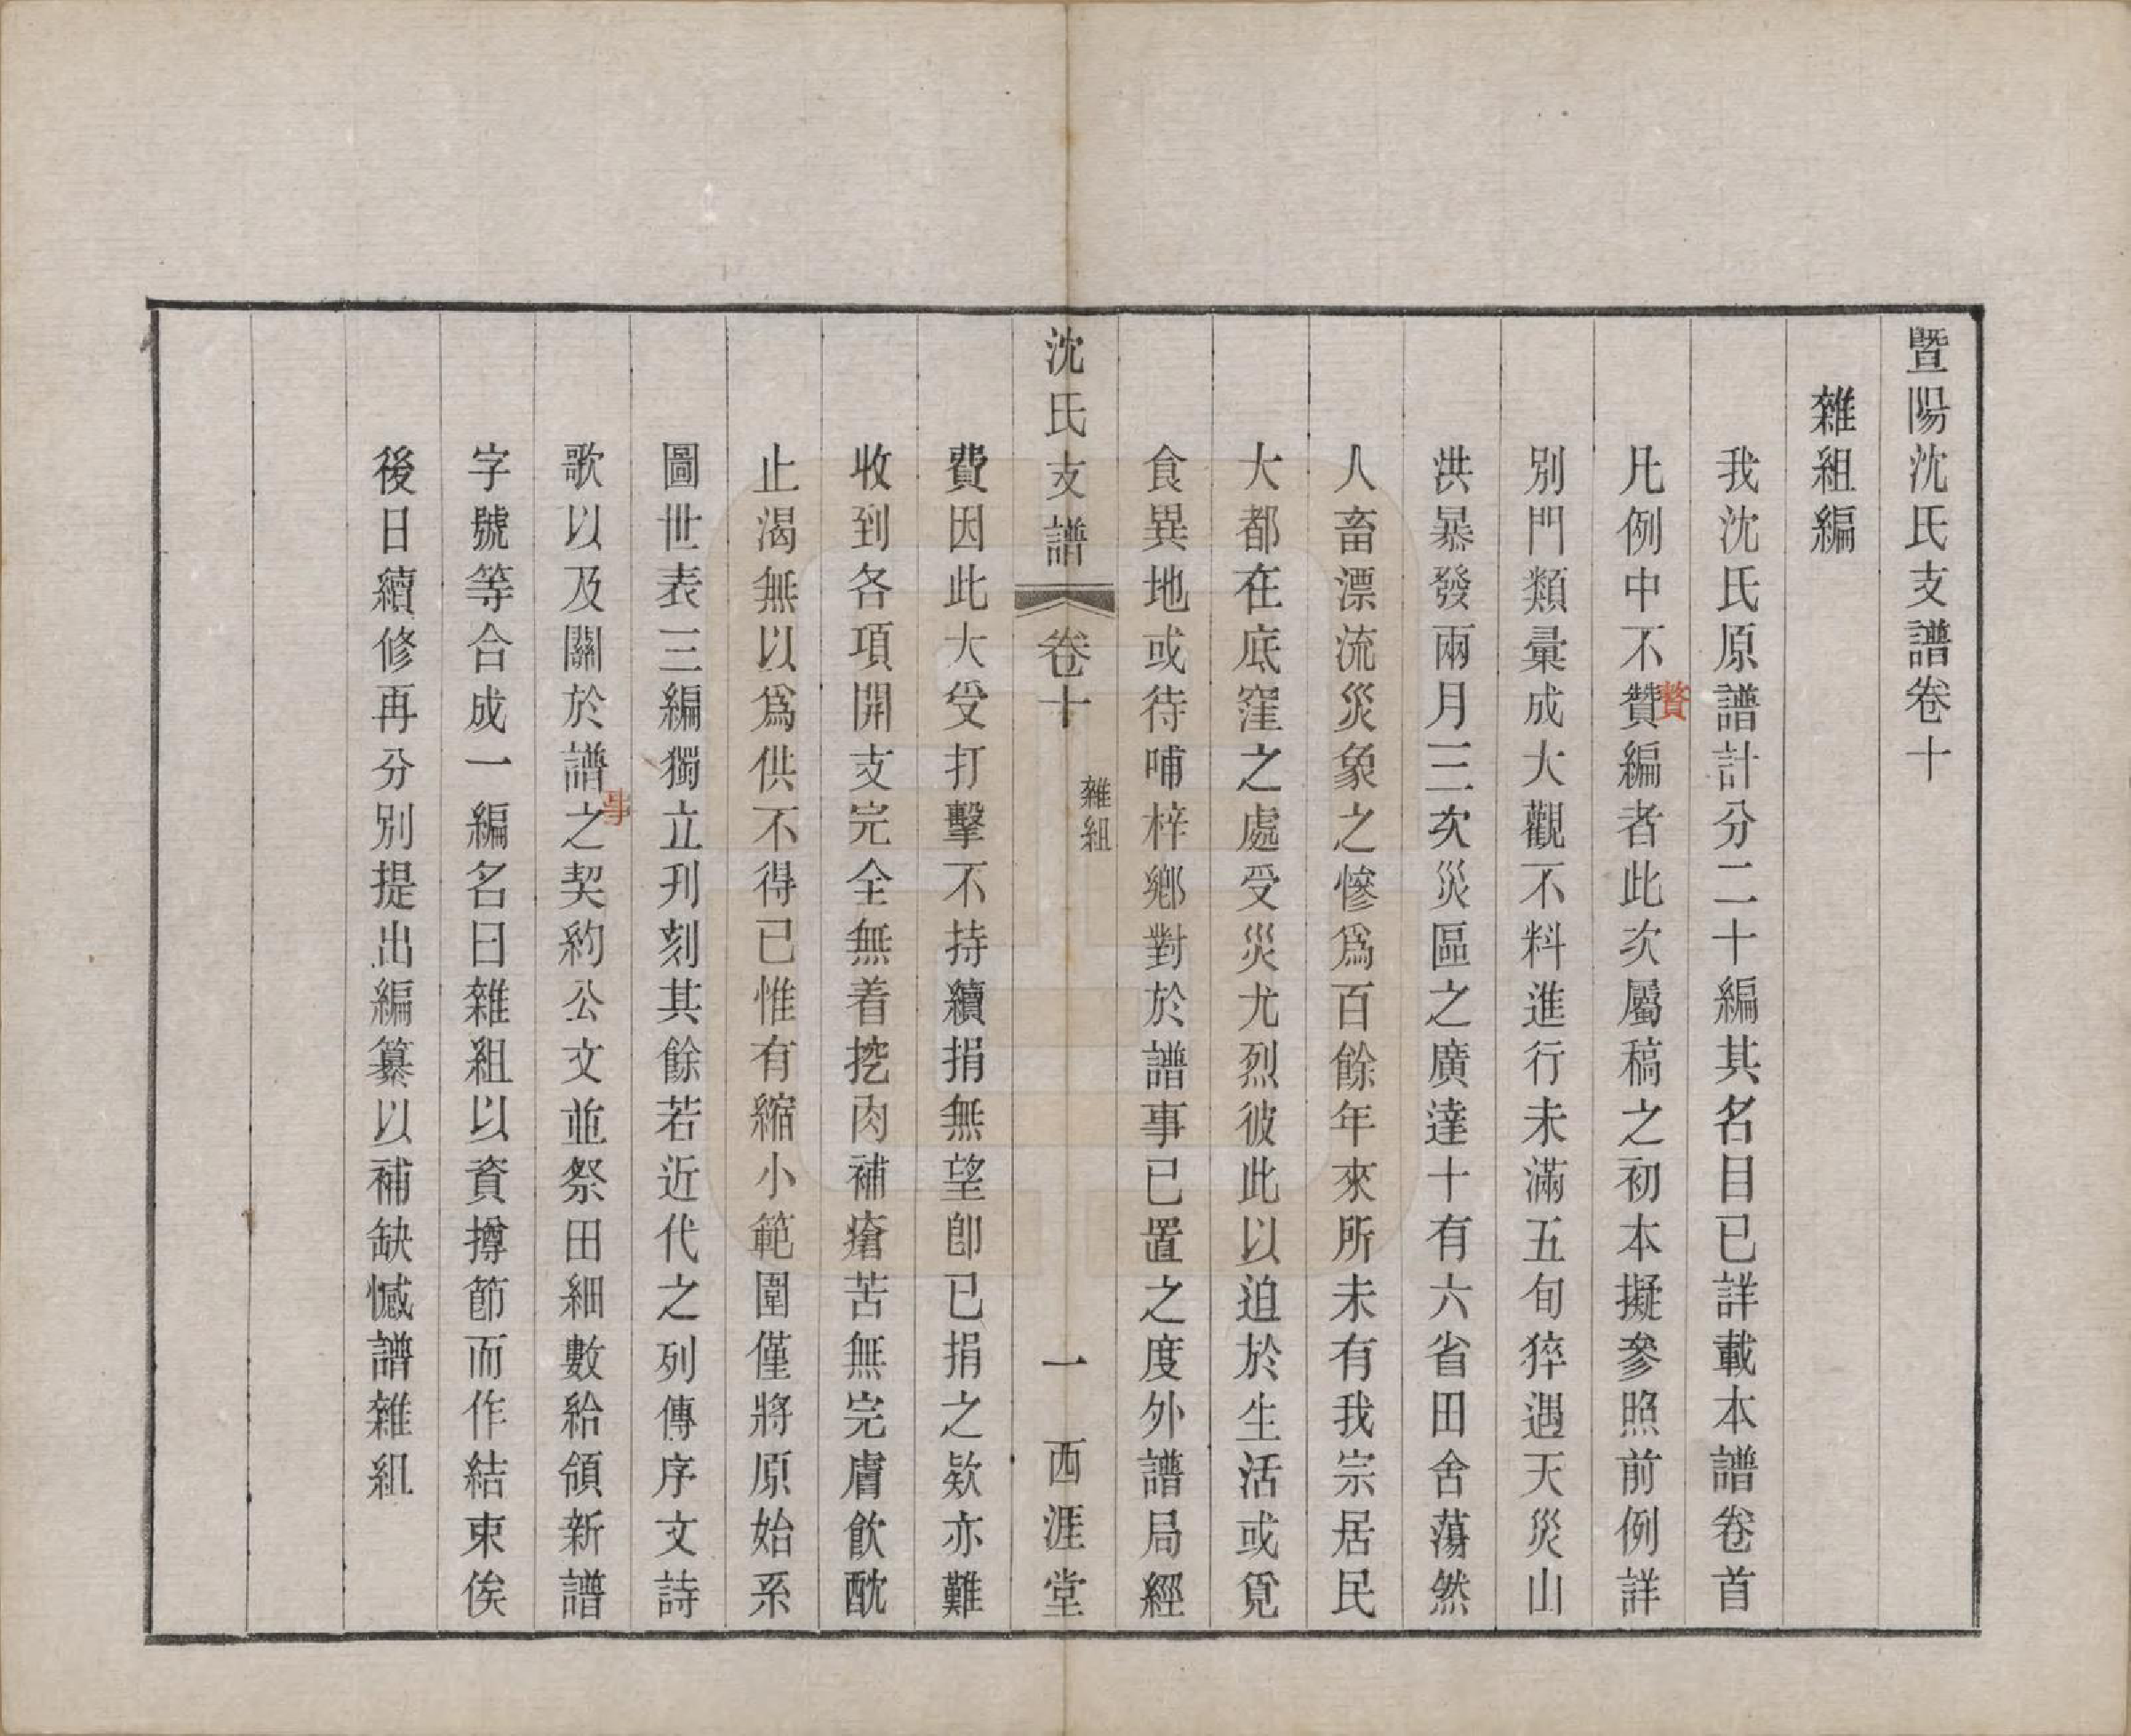 暨陽沈氏支譜卷十
雜組編
我沈氏原譜計分二十編其名目已詳載本譜卷首
凡例中不贊編者此次屬稿之初本擬參照前例詳
贅
別門類彙成大觀不料進行未滿五旬猝遇天災山
洪暴發兩月三次災區之廣達十有六省田舍蕩然
人畜漂流災象之慘爲百餘年來所未有我宗居民
大都在底窪之處受災尤烈彼此以迫於生活或覓
食異地或待哺梓鄉對於譜事已置之度外譜局經
沈氏支譜
卷十
雜組
一
西涯堂
費因此大受打擊不持續捐無望卽已捐之欵亦難
收到各項開支完全無着挖肉補瘡苦無完膚飮酖
止渴無以爲供不得已惟有縮小範圍僅將原始系
圖世表三編獨立刋刻其餘若近代之列傳序文詩
歌以及關於譜之契約公文並祭田細數給領新譜
事
字號等合成一編名曰雜組以資撙節而作結束俟
後日續修再分別提出編纂以補缺憾譜雜組